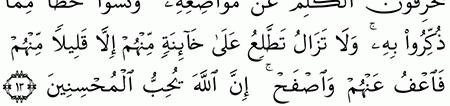 يُحَرِّفُونَ ٱلْكَلِمَ عَن مَّوَاضِعِهِۦ ۙ وَنَسُوا۟ حَظًّا مِّمَّا
ذُكِّرُوا۟ بِهِۦ ۚ وَلَا تَزَالُ تَطَّلِعُ عَلَىٰ خَآئِنَةٍ مِّنْهُمْ إِلَّا قَلِيلًا مِّنْهُمْ ۖ
فَٱعْفُ عَنْهُمْ وَٱصْفَحْ ۚ إِنَّ ٱللَّهَ يُحِبُّ ٱلْمُحْسِنِينَ ۝١٣